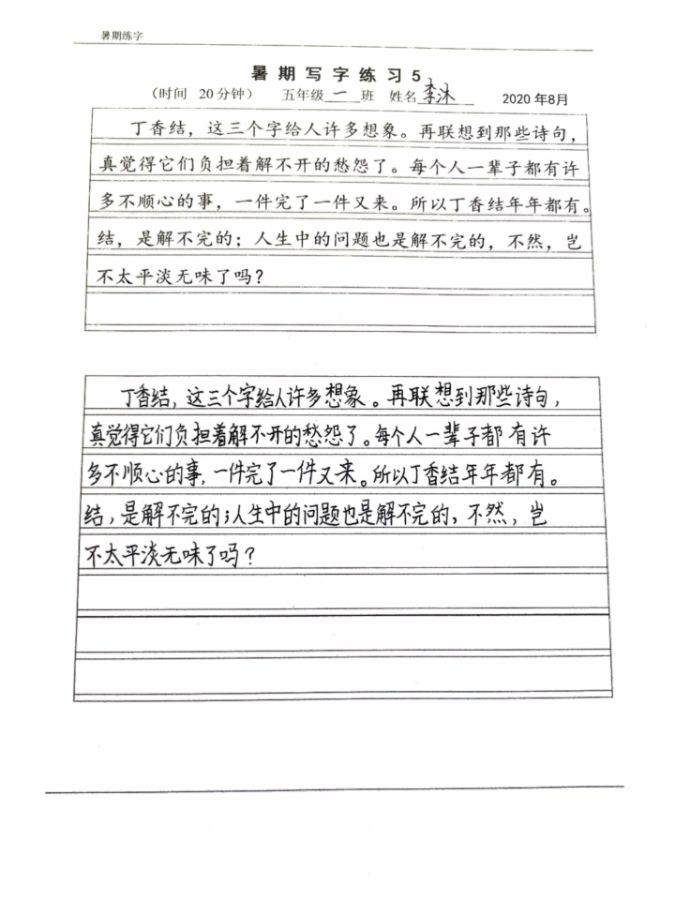 暑期练字
暑期写字练习5
（时间 20分钟） 五年级一班 姓名李沐 2020年8月
丁香结，这三个字给人许多想象。再联想到那些诗句，
真觉得它们负担着解不开的愁怨了。每个人一辈子都有许
多不顺心的事，一件完了一件又来。所以丁香结年年都有。
结，是解不完的；人生中的问题也是解不完的，不然，岂
不太平淡无味了吗？
丁香结，这三个字给人许多想象。再联想到那些诗句，
真觉得它们负担着解不开的愁怨了。每个人一辈子都有许
多不顺心的事，一件完了一件又来。所以丁香结年年都有。
结，是解不完的；人生中的问题也是解不完的，不然，岂
不太平淡无味了吗？